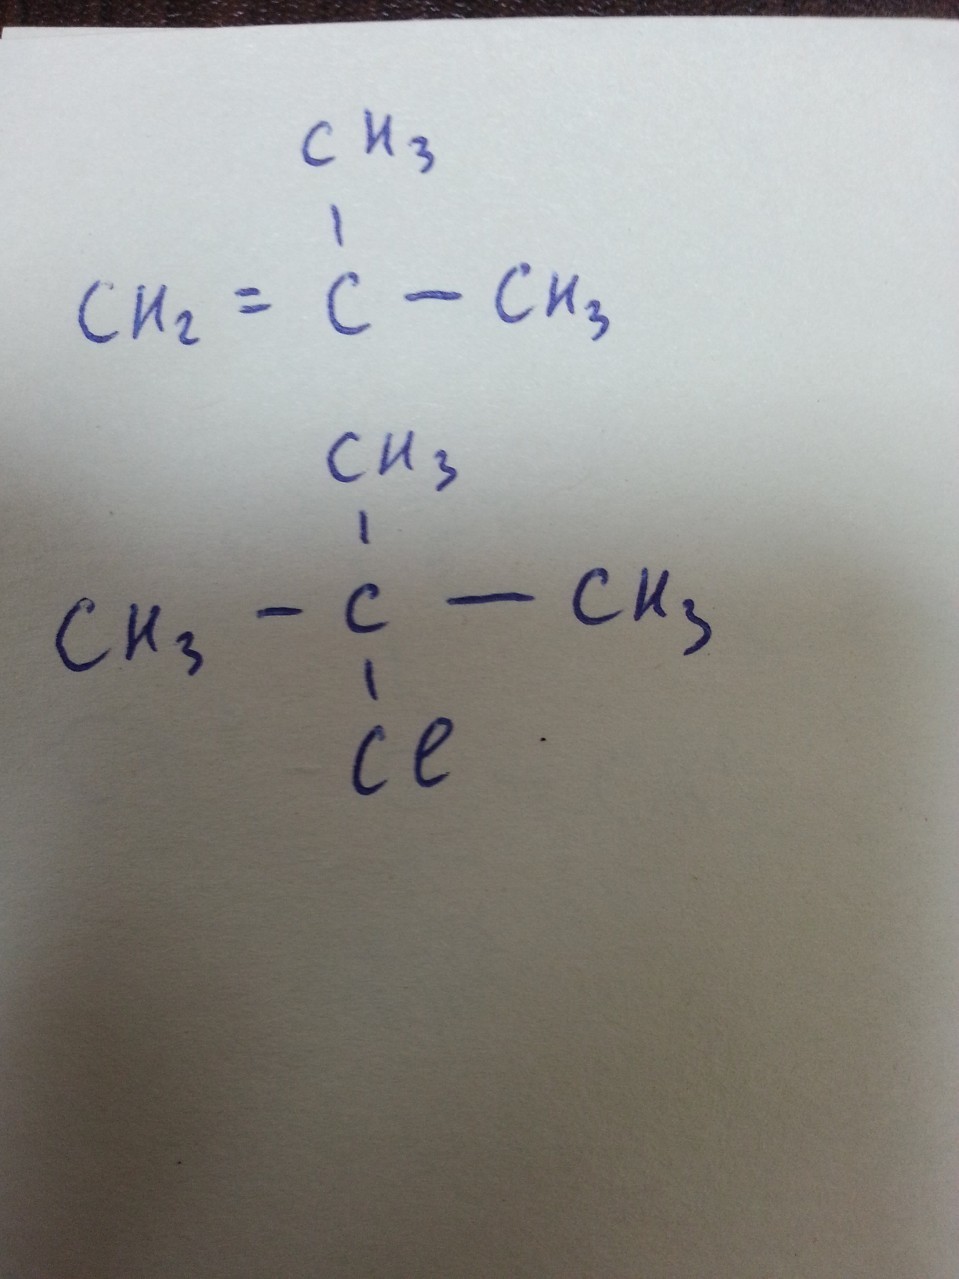 CH3
|
CH2 = C — CH3
CH3
|
CH3 - C — CH3
|
Cl